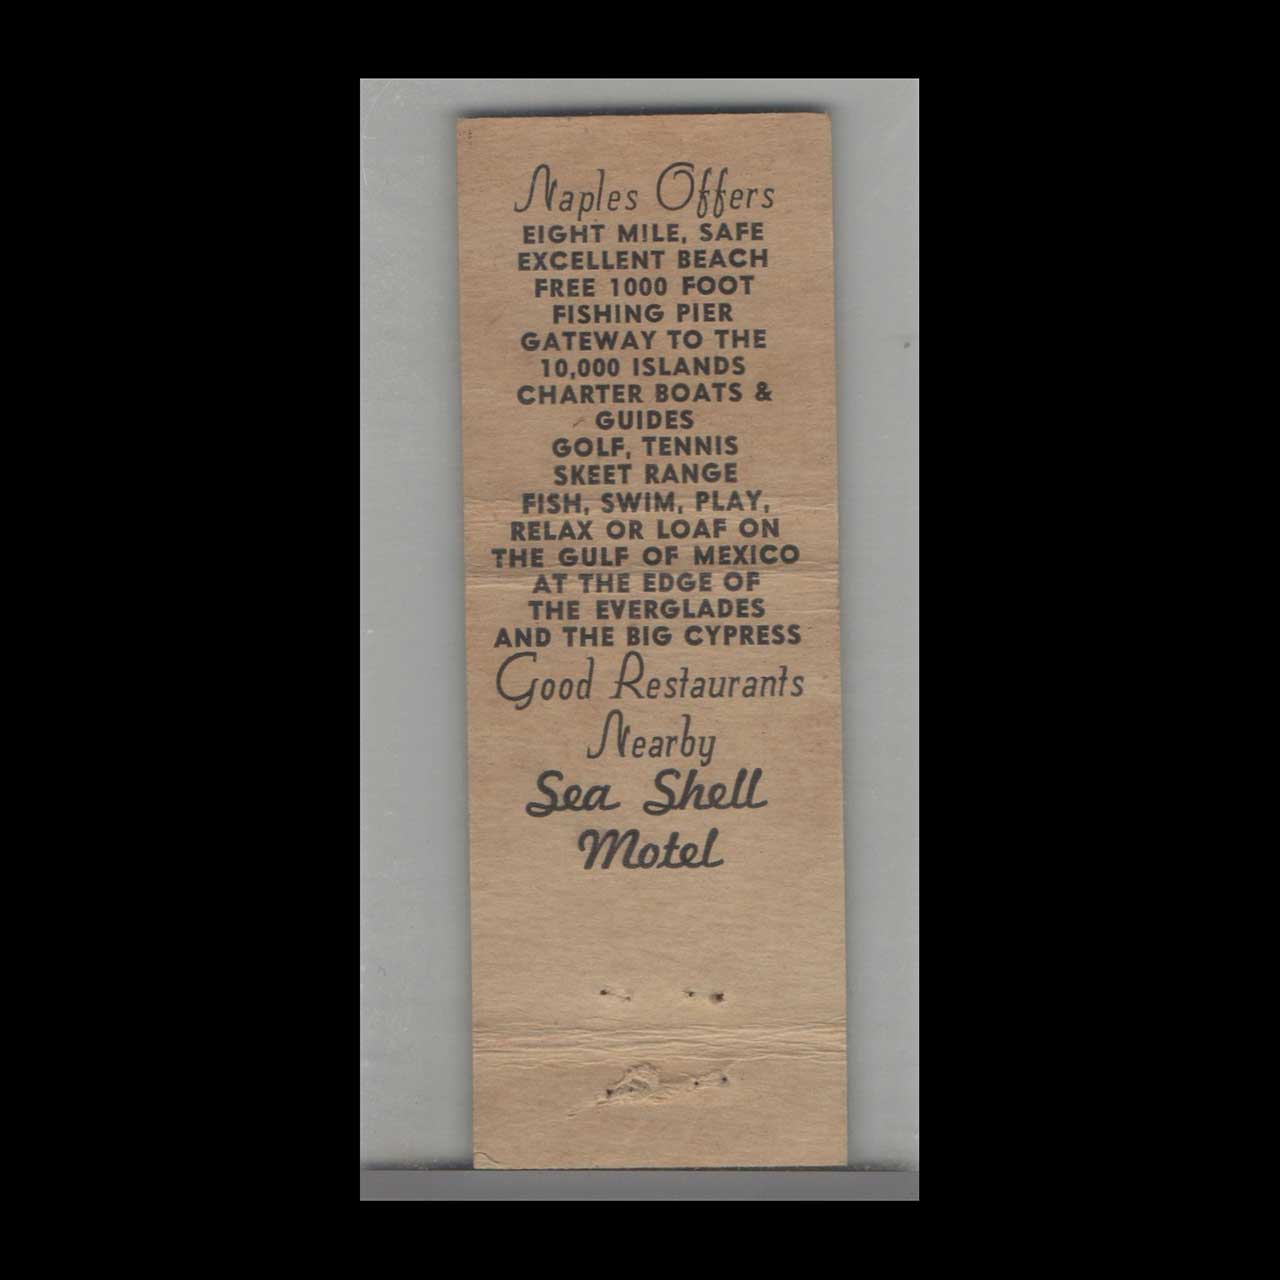 Naples Offers
EIGHT MILE, SAFE
EXCELLENT BEACH
FREE 1000 FOOT
FISHING PIER
GATEWAY TO THE
10,000 ISLANDS
CHARTER BOATS &
GUIDES
GOLF, TENNIS
SKEET RANGE
FISH, SWIM, PLAY,
RELAX OR LOAF ON
THE GULF OF MEXICO
AT THE EDGE OF
THE EVERGLADES
AND THE BIG CYPRESS
Good Restaurants
Nearby
Sea Shell
Motel